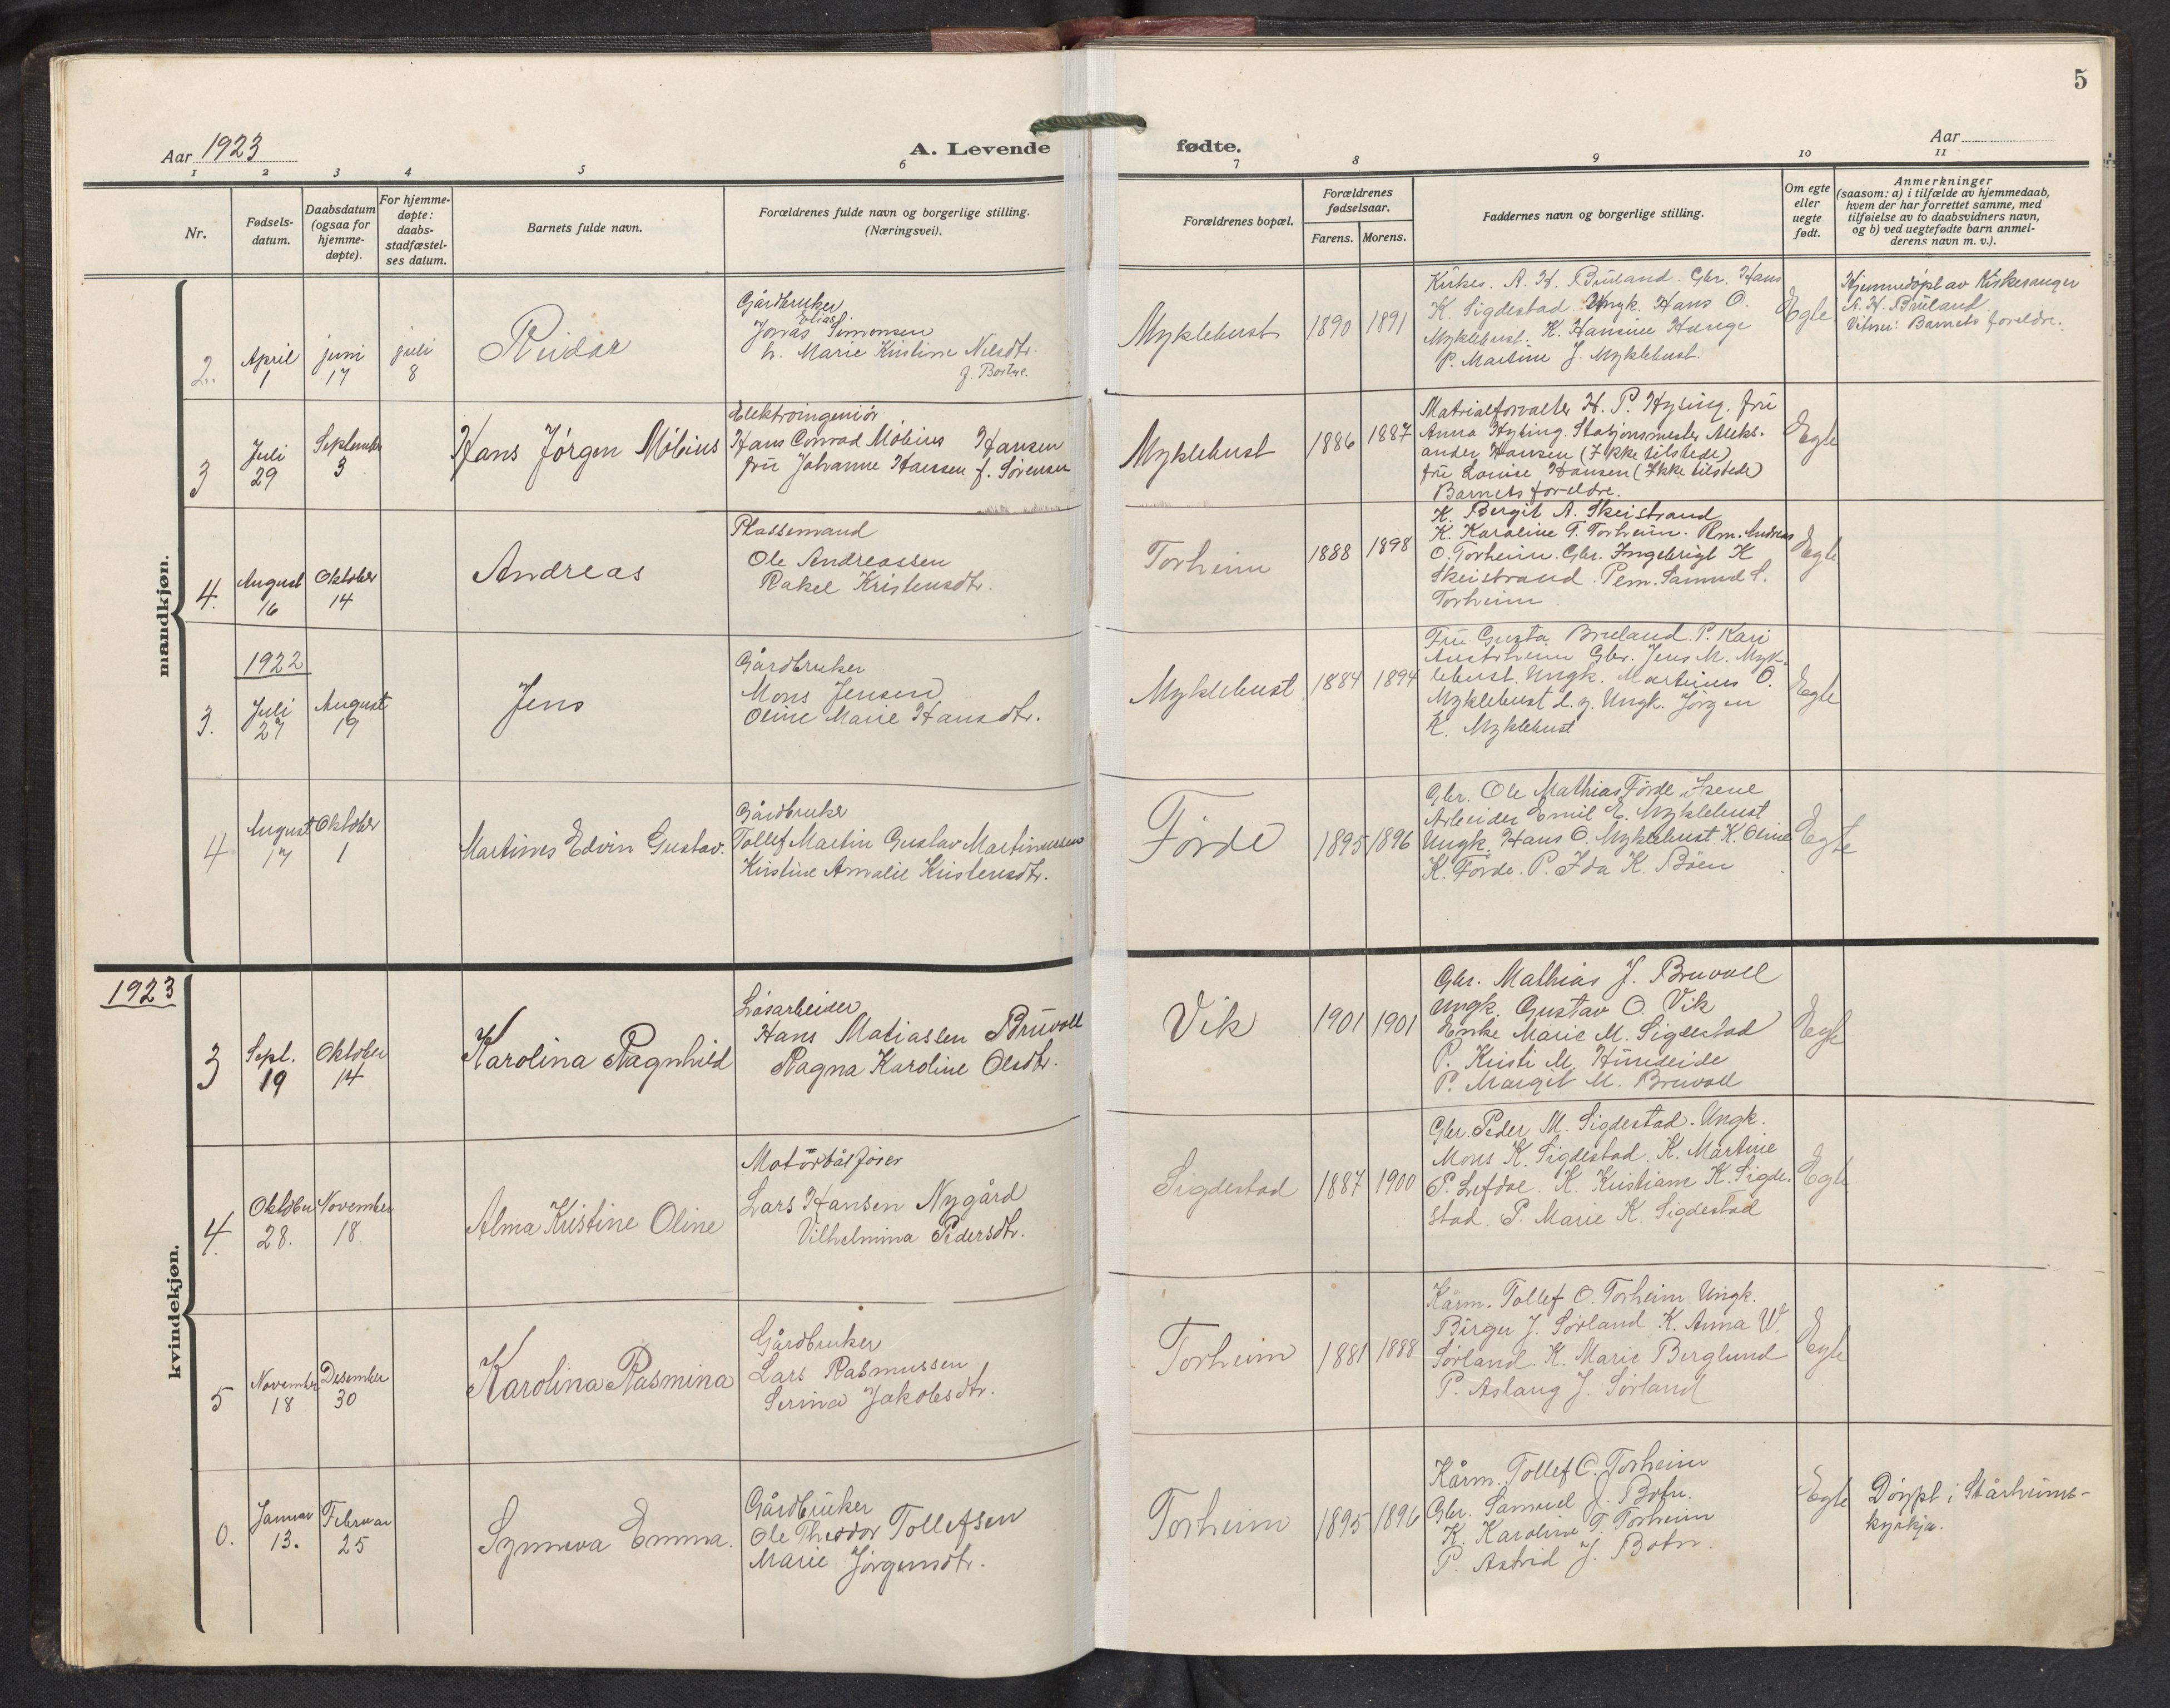 5
Aar 1923
A. Levende
fødte.
Aar
1 2 3 4 5 6 7 8 9 10 11
Nr.
Fødsels-
datum.
Daabsdatum
(ogsaa for
hjemme-
døpte).
For hjemme-
døpte:
daabs-
stadfæstel-
ses datum.
Barnets fulde navn.
Forældrenes fulde navn og borgerlige stilling.
(Næringsvei).
Forældrenes bopæl.
Forældrenes
fødselsaar.
Farens. Morens.
Faddernes navn og borgerlige stilling.
Om egte
eller
uegte
født.
Anmerkninger
(saasom: a) i tilfælde av hjemmedaab,
hvem der har forrettet samme, med
tilføielse av to daabsvidners navn,
og b) ved uegtefødte barn anmel-
derens navn m. v.).
mandkjøn.
2.
April
1
juni
17
juli
8
Reidar
Gårdbruker
Elias
Jonas Simonsen
h. Marie Kristine Nilsdtr.
Myklebust
1890
1891
Kirkes. A. H. Bruland. Gbr. Hans
K. Sigdestad Ungk. Hans O.
Myklebust. K. Hansine Hauge
P. Martine J. Myklebust.
Egte
Hjemmedöpt av Kirkesanger
A. H. Bruland
Vitner: Barnets foreldre.
3
Juli
29
September
3
Hans Jörgen Möbius
Elektroingeniör
Hans Conrad Möbius Hansen
fru Johanne Hansen f. Sörensen
Myklebust
1886
1887
Matrialforvalter H. P. Hysing. fru
Anna Hysing. Stasjonsmester Aleks-
ander Hansen (Ikke tilstede)
fru Louise Hansen (Ikke tilstede)
Barnets foreldre.
Egte
4.
August
16
Oktober
14
Andreas
Plassemand
Ole Andreassen
Rakel Kristensdtr.
Torheim
1888
1898
K. Bergit A. Skeistrand
K. Karoline T. Torheim. Rm. Andreas
O. Torheim. Gbr. Ingebrigt K
Skeistrand. Pem. Samuel S.
Torheim
Egte
1922
3.
Juli
27
August
19
Jens
Gårdbruker
Mons Jensen
Oline Marie Hansdtr.
Myklebust
1884
1894
Fru Gusta Bruland. P. Kari
Austrheim Gbr. Jens M. Myk-
lebust. Ungk. Martinus O.
Myklebust d. y. Ungk. Jörgen
K. Myklebust
Egte
4
August
17
Oktober
1
Martines Edvin Gustav.
Gårdbruker
Tollef Martin Gustav Martinussen
Kristine Amalie Kristensdtr.
Förde
1895
1896
Gbr. Ole Mathias Förde, Isene
Arbeider Emil E. Myklebust
Ungk. Hans O. Myklebust K. Oline
K. Förde. P. Ida K. Böen
Egte
1923
kvindekjøn.
3
Sept.
19
Oktober
14
Karolina Ragnhild
Lösarbeider
Hans Matiassen Bruvoll
Ragna Karoline Olsdtr.
Vik
1901
1901
Gbr. Mathias J. Bruvoll
Ungk. Gustav O. Vik
Enke Marie M. Sigdestad
P. Kristi M. Hundeide
P. Margit M. Bruvoll
Egte
4.
Oktober
28.
November
18.
Alma Kristine Oline
Motorbåtförer
Lars Hansen Nygård
Vilhelmina Pedersdtr.
Sigdestad
1887
1900
Gbr. Peder M. Sigdestad. Ungk.
Mons K. Sigdestad. K. Martine
P. Lefdal. K. Kristiane K. Sigde-
stad. P. Marie K. Sigdestad
Egte
5
November
18
Desember
30
Karolina Rasmina
Gårdbruker
Lars Rasmussen
Serina Jakobsdtr.
Torheim
1881
1888
Kårm. Tollef O. Torheim Ungk.
Birger J. Sörland. K. Anna W.
Sörland. K. Marie Berglund
P. Aslaug J. Sörland
Egte
0.
Januar
13.
Februar
25
Synneva Emma.
Gårdbruker
Ole Theodor Tollefsen
Marie Jörgensdtr.
Torheim
1895
1896
Kårm. Tollef O. Torheim
Gbr. Samuel J. Botn.
K. Karoline T. Torheim
P. Astrid J. Botn.
Egte
Döypt i Stårheims-
kyrkja.